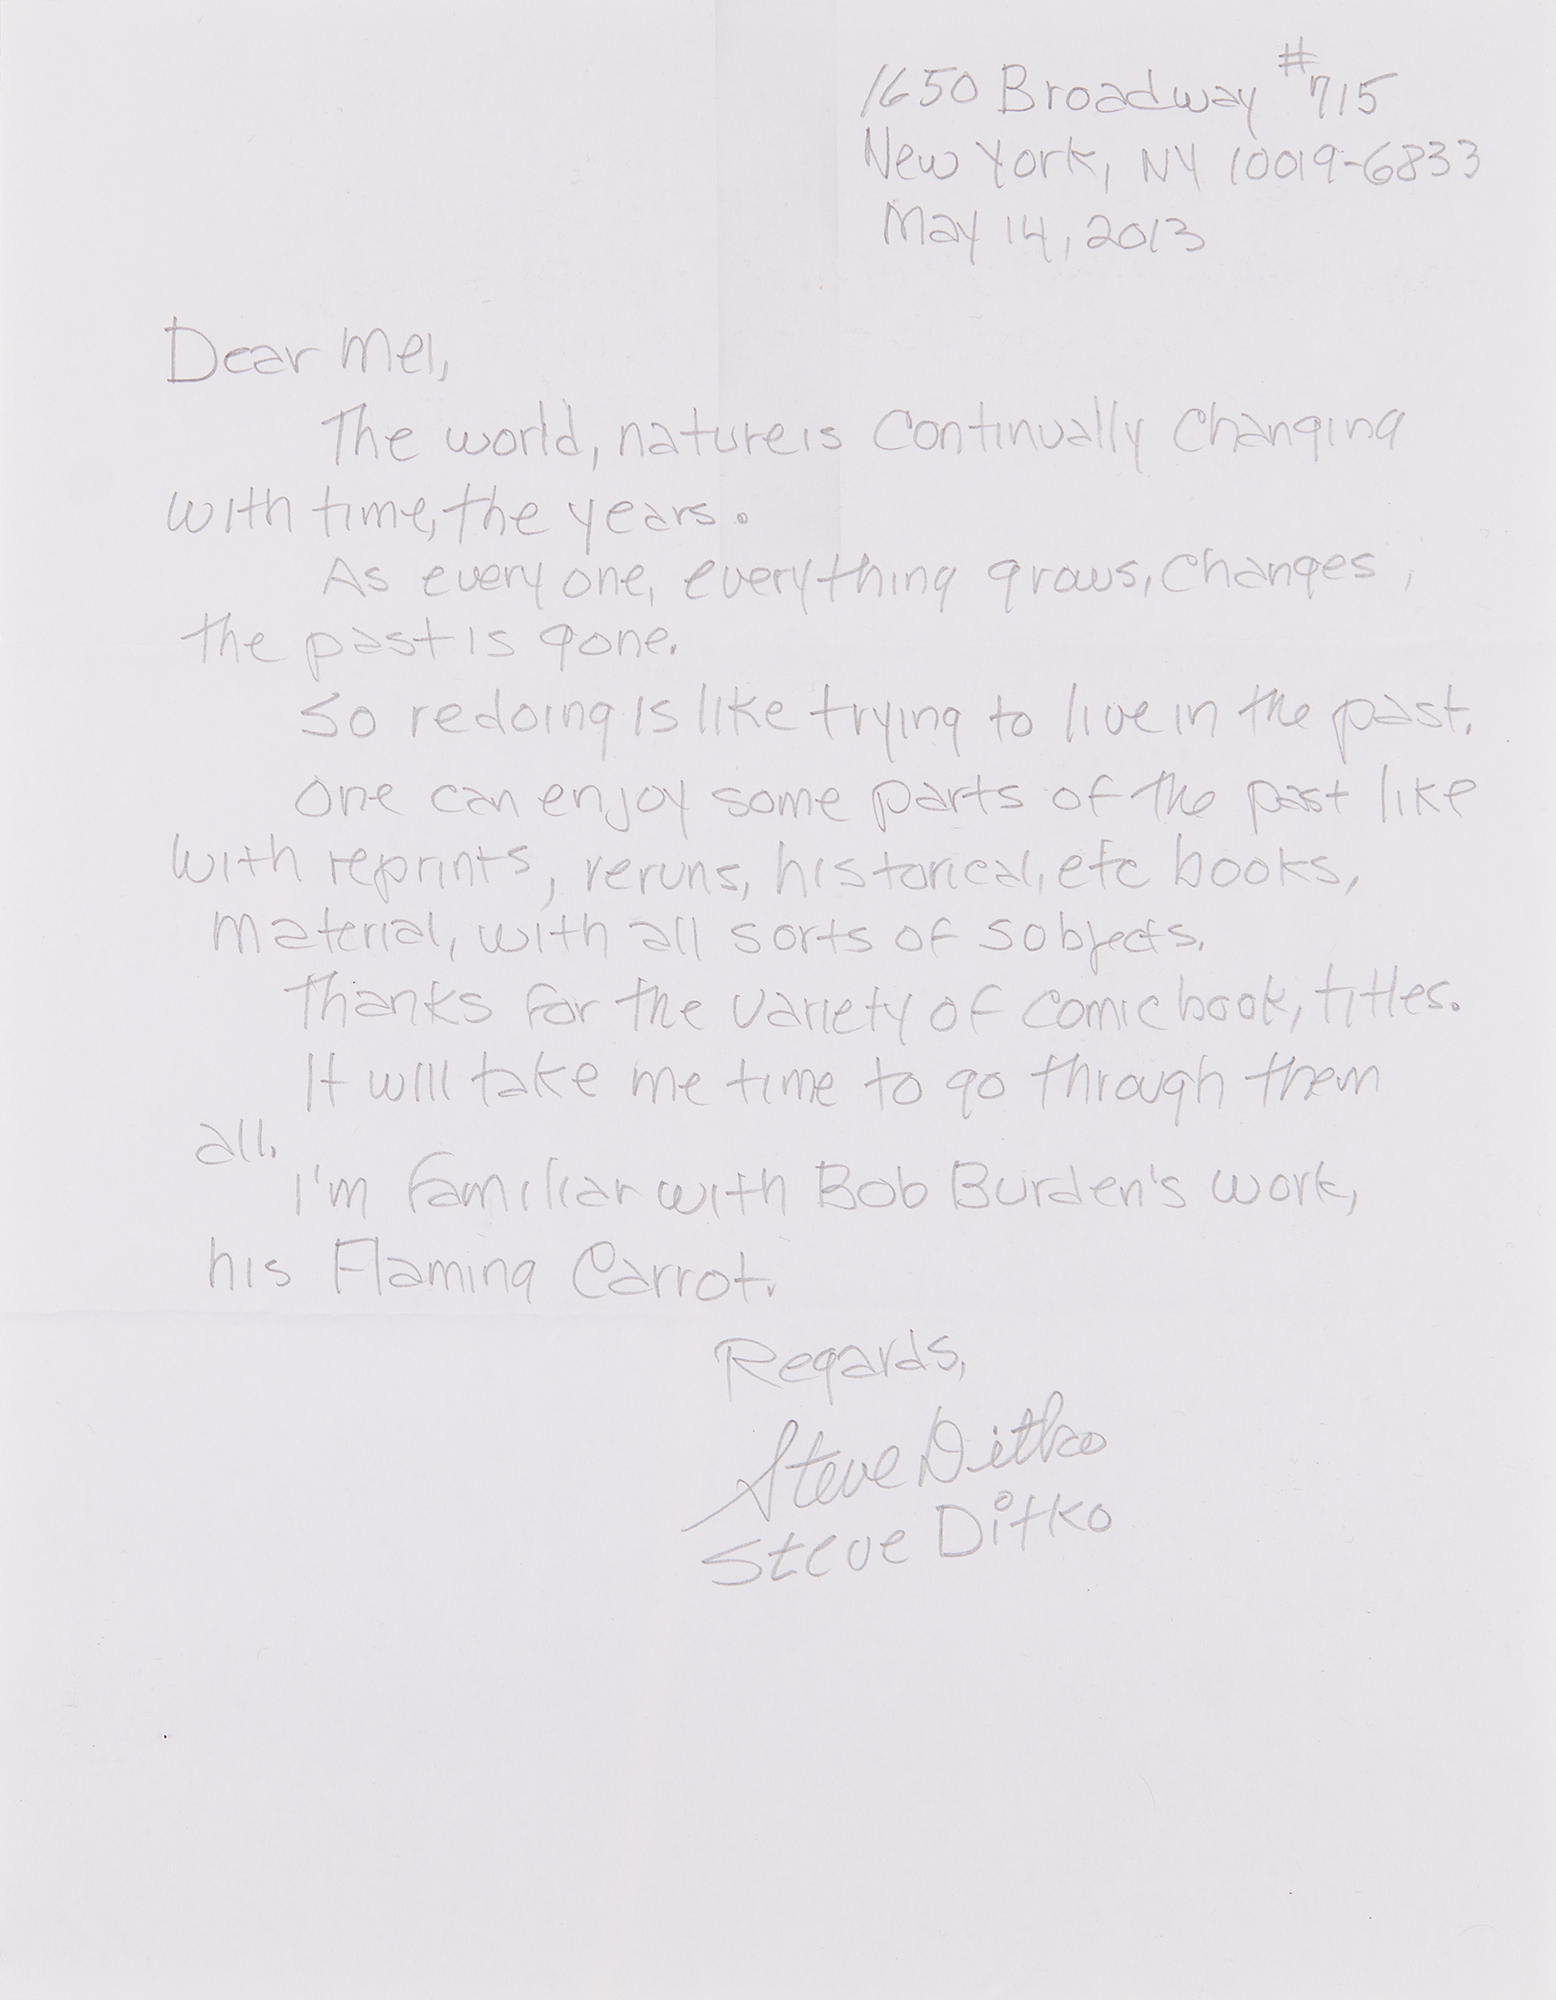 1650 Broadway #715
New York, NY 10019-6833
May 14, 2013
Dear Mel,
The world, nature is continually changing
with time, the years.
As every one, everything grows, changes,
the past is gone.
So redoing is like trying to live in the past.
One can enjoy some parts of the past like
with reprints, reruns, historical, etc books,
material, with all sorts of sobjects.
Thanks for the variety of comic book, titles.
It will take me time to go through them
all.
I'm familiar with Bob Burden's work,
his Flaming Carrot.
Regards,
Steve Ditko
Steve Ditko